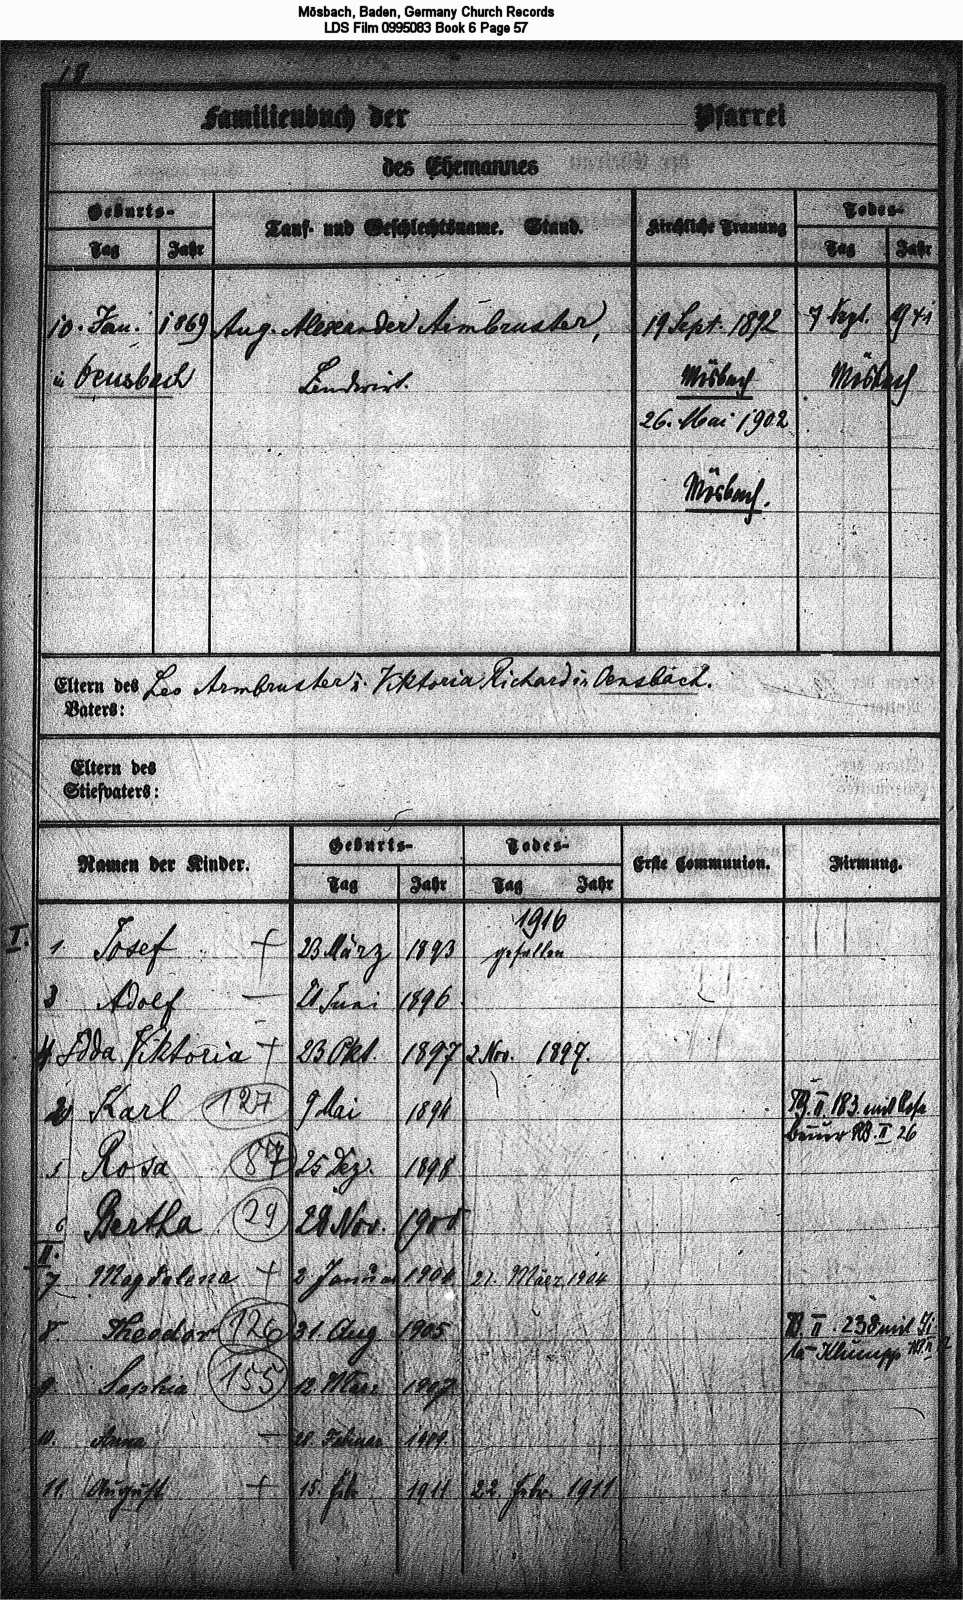 Mösbach, Baden, Germany Church Records
LDS Film 0995083 Book 6 Page 57
18
Familienbuch der Pfarrei
des Ehemannes
Geburts- Tauf- und Geschlechtsname. Stand. Kirchliche Trauung Todes-
Tag Jahr Tag Jahr
10. Jan. 1869 Aug. Alexander Armbruster, 19 Sept. 1892 7 Sept. 1941
in Oensbach Landwirt. Mösbach Mösbach
26. Mai 1902
Mösbach.
Eltern des Vaters: Leo Armbruster u. Viktoria Richard in Oensbach.
Eltern des Stiefvaters:
Namen der Kinder. Geburts- Todes- Erste Communion. Firmung.
Tag Jahr Tag Jahr
I. 1. Josef + 23 März 1893 1916 gefallen
3 Adolf — 21 Juni 1896
4 Idda Viktoria + 23 Okt. 1897 2 Nov. 1897.
2 Karl 127 9 Mai 1894 II. 183 mit Rosa
II 26
5 Rosa 87 25 Dez. 1898
6 Bertha 29 Nov. 1900
II.
7 Magdalena + 2 Januar 1904 27. März 1904
8. Theodor 126 31. Aug 1905 II. 238 mit
Klumpp
9. Sophia 155 12 März 1907
10. Anna — 20. Februar 1909.
11. August + 15. Feb 1911 22. Febr. 1911